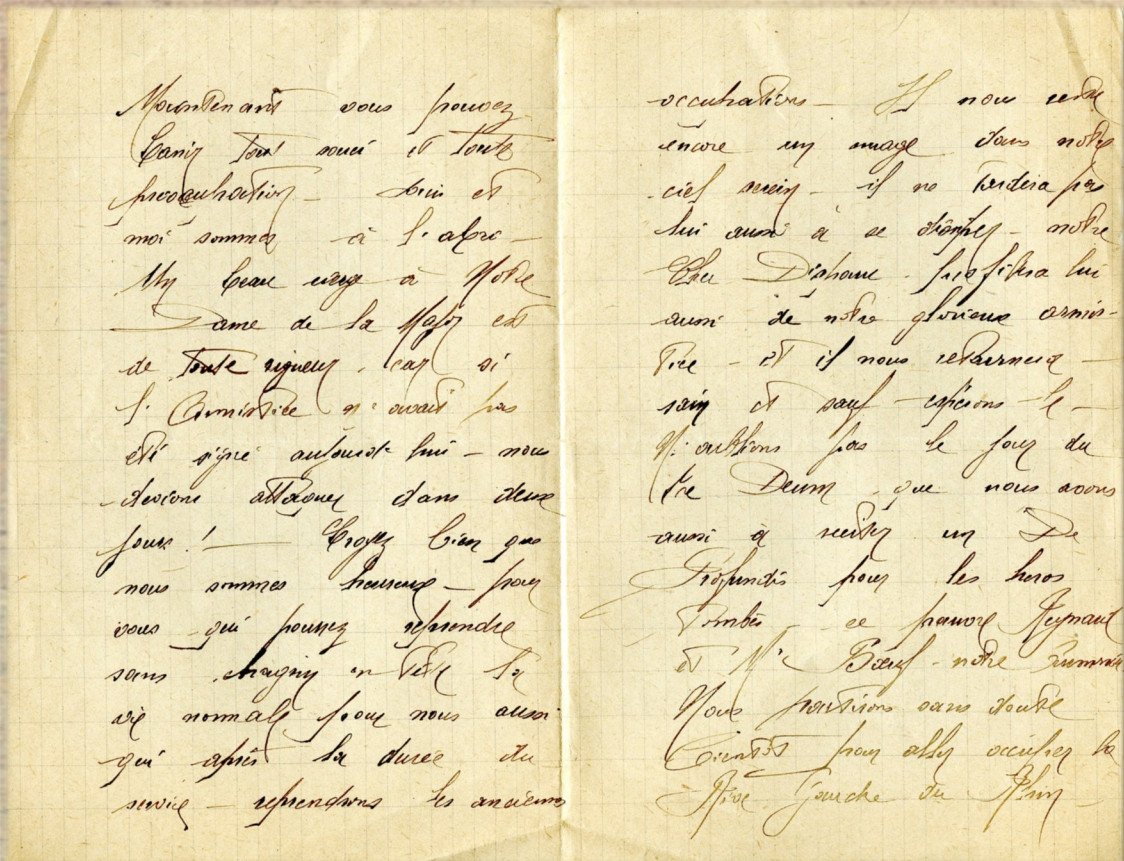 Maintenant vous pouvez
banir tout souci et toute
préocupation – et
moi sommes à l'abri –
Un beau cierge à Notre
Dame de la Major est
de toute rigueur, car si
l'Armistice n'avait pas
été signé aujourd'hui – nous
devions attaquer dans deux
jours ! — Croyez bien que
nous sommes heureux – pour
vous – qui pourrez reprendre
sans chagrin en tête la
vie normale pour nous aussi
qui après la durée du
service – reprendrons les anciennes
occupations – Il nous reste
encore un nuage dans notre
ciel serein – il ne tardera pas
lui aussi à se – notre
Cher profitera lui
aussi de notre glorieux armis-
tice – et il nous retournera –
sain et sauf – espérons-le –
N'oublions pas le jour du
Te Deum, que nous avons
aussi à réciter un De
Profundis pour les heros
tombés – ce pauvre Reynaud
et Mr Bœuf – notre
Nous partirons sans doute
bientôt pour aller occuper la
Rive Gauche du Rhin –